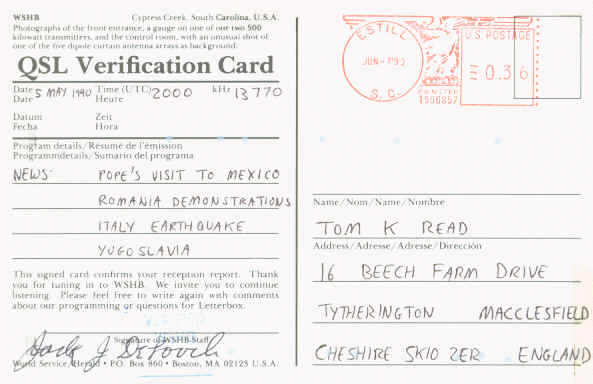 WSHB Cypress Creek, South Carolina, U.S.A.
Photographs of the front entrance, a gauge on one of our two 500
kilowatt transmitters, and the control room, with an unusual shot of
one of the five dipole curtain antenna arrays as background.
QSL Verification Card
Date 5 MAY 1990 Time (UTC) 2000 kHz 13770
Date Heure
Datum Zeit
Fecha Hora
Program details/Résumé de l'émission
Programmdetails/Sumario del programa
NEWS: POPE'S VISIT TO MEXICO
ROMANIA DEMONSTRATIONS
ITALY EARTHQUAKE
YUGOSLAVIA
This signed card confirms your reception report. Thank
you for tuning in to WSHB. We invite you to continue
listening. Please feel free to write again with comments
about our programming or questions for Letterbox.
Signature of WSHB Staff
World Service/Herald • P.O. Box 860 • Boston, MA 02123 U.S.A.
ESTILL
JUN
S.C.
U.S. POSTAGE
0.36
PB METER
Name/Nom/Name/Nombre
TOM K READ
Address/Adresse/Adresse/Dirección
16 BEECH FARM DRIVE
TYTHERINGTON MACCLESFIELD
CHESHIRE SK10 2ER ENGLAND